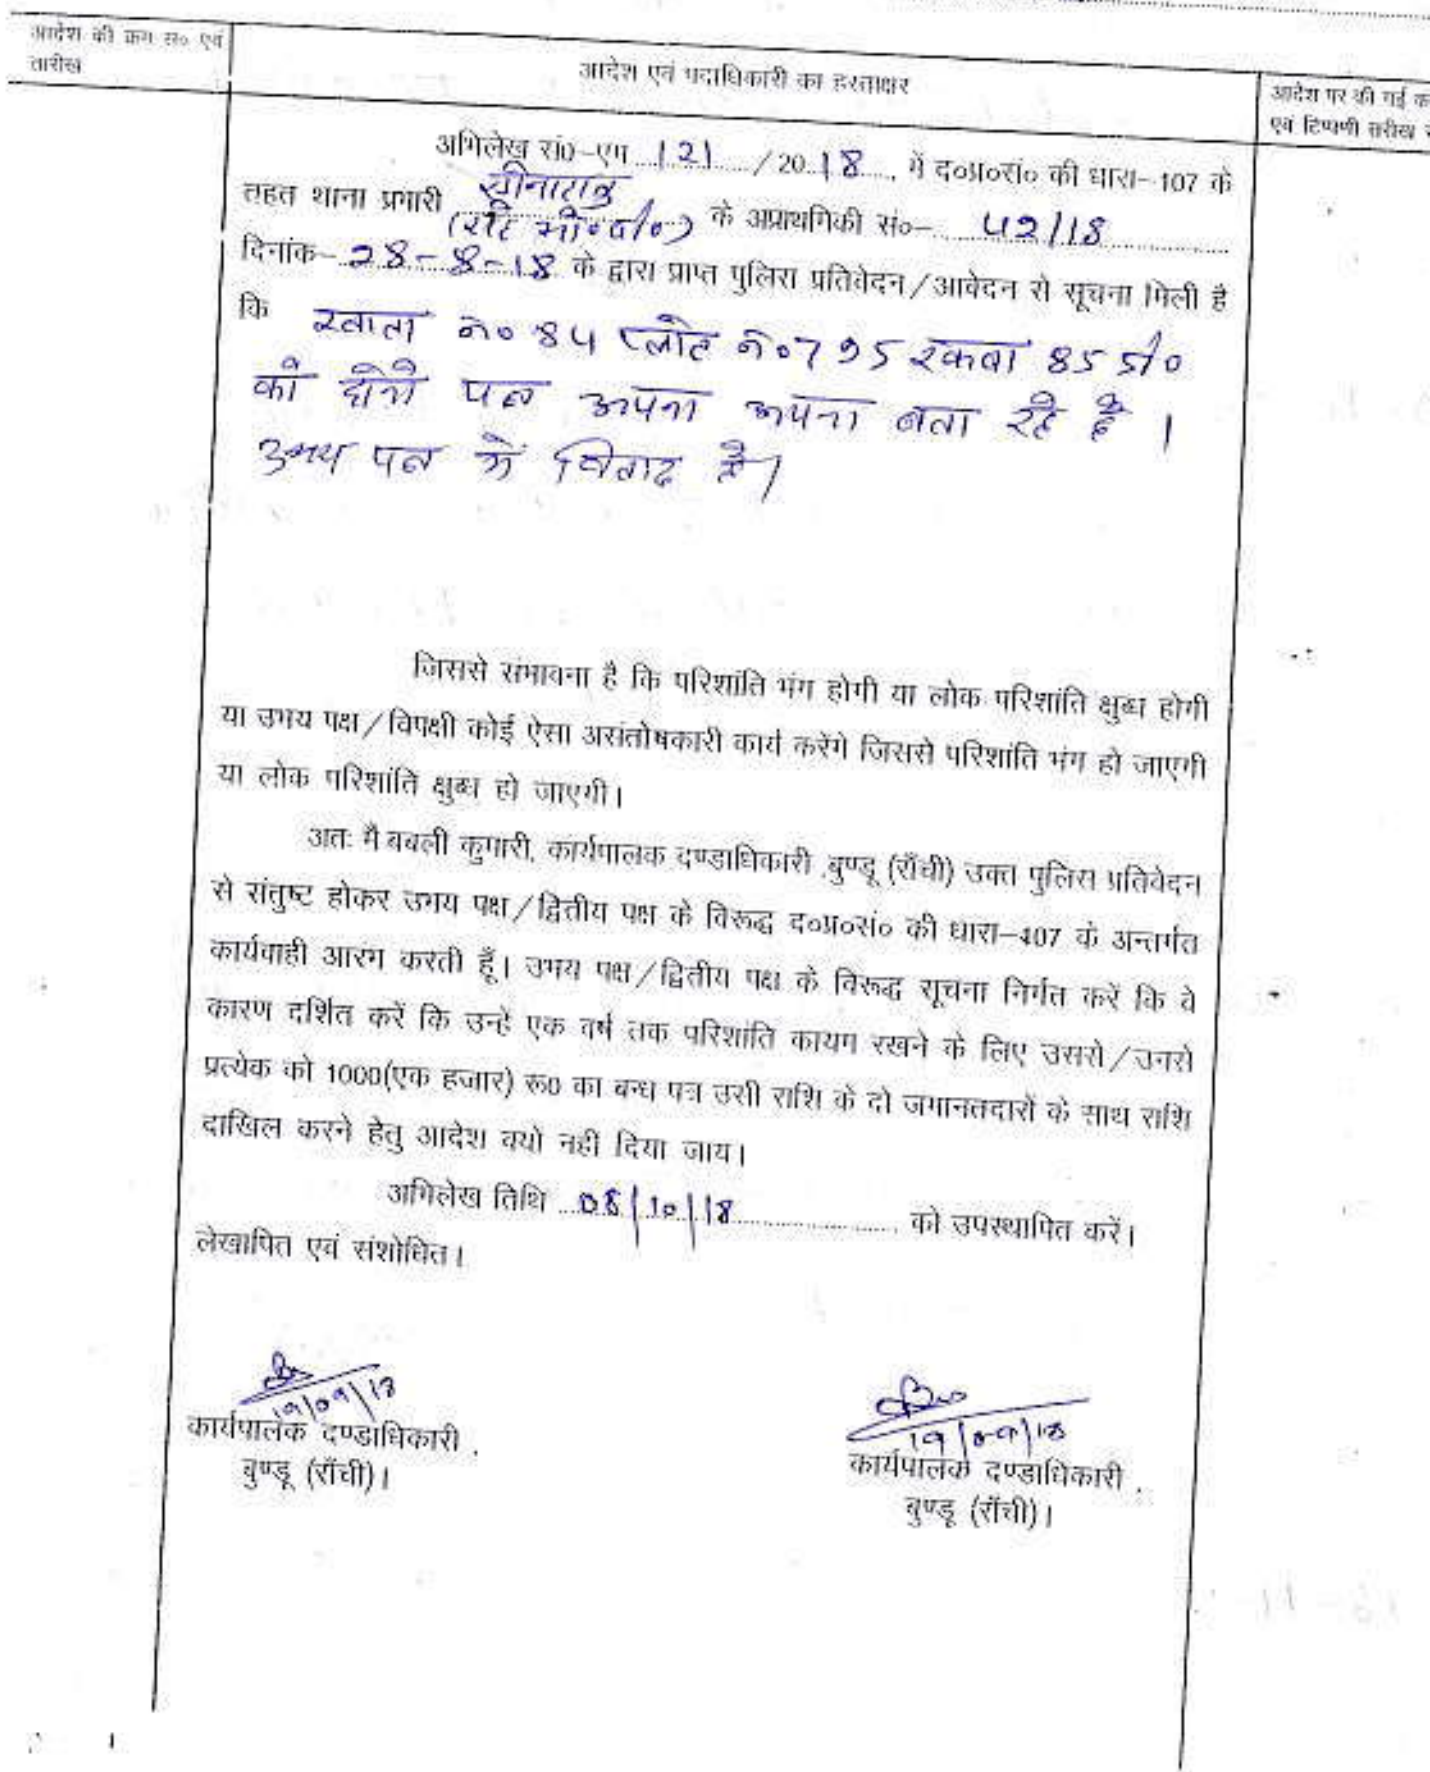 आदेश की क्रम सं० एवं
तारीख
आदेश एवं पदाधिकारी का हस्ताक्षर
आदेश पर की गई
एवं टिप्पणी तारीख
अभिलेख सं0-एम 121 /2018, में द०प्र०सं० की धारा-107 के
तहत थाना प्रभारी सोनाहातु
के अप्राथमिकी सं०- 42/18
दिनांक- 28-8-18 के द्वारा प्राप्त पुलिस प्रतिवेदन/आवेदन से सूचना मिली है
कि खाता नं० 84 प्लॉट नं० 795 रकबा 85 डी०
को दोनो पक्ष अपना अपना बता रहे है।
उभय पक्ष में विवाद है।
जिससे संभावना है कि परिशांति भंग होगी या लोक परिशांति क्षुब्ध होगी
या उभय पक्ष/विपक्षी कोई ऐसा असंतोषकारी कार्य करेंगे जिससे परिशांति भंग हो जाएगी
या लोक परिशांति क्षुब्ध हो जाएगी।
अतः मैं बबली कुमारी, कार्यपालक दण्डाधिकारी बुण्डू (राँची) उक्त पुलिस प्रतिवेदन
से संतुष्ट होकर उभय पक्ष/द्वितीय पक्ष के विरूद्ध द०प्र०सं० की धारा-107 के अन्तर्गत
कार्यवाही आरंभ करती हूँ। उभय पक्ष/द्वितीय पक्ष के विरूद्ध सूचना निर्गत करें कि वे
कारण दर्शित करें कि उन्हे एक वर्ष तक परिशांति कायम रखने के लिए उससे/उनसे
प्रत्येक को 1000(एक हजार) रू0 का बन्ध पत्र उसी राशि के दो जमानतदारों के साथ राशि
दाखिल करने हेतु आदेश क्यो नही दिया जाय।
अभिलेख तिथि 08/10/18 को उपस्थापित करें।
लेखापित एवं संशोधित।
19/09/18
कार्यपालक दण्डाधिकारी
बुण्डू (राँची)।
19/09/18
कार्यपालक दण्डाधिकारी
बुण्डू (राँची)।